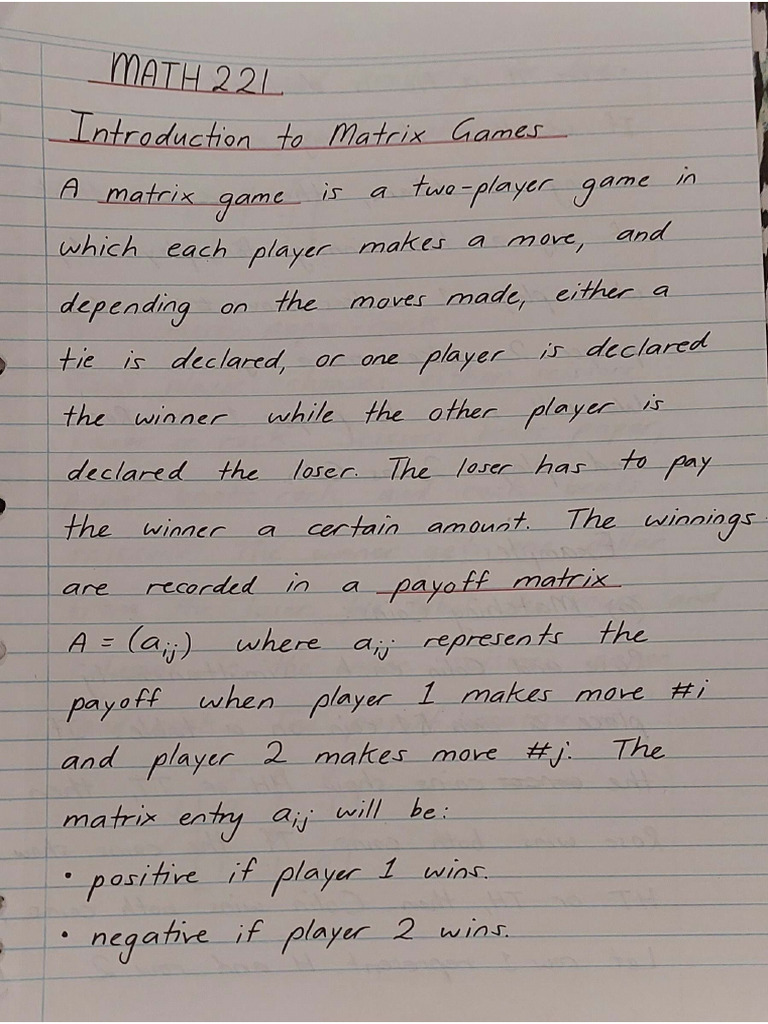 MATH 221
Introduction to Matrix Games
A matrix game is a two-player game in
which each player makes a move, and
depending on the moves made, either a
tie is declared, or one player is declared
the winner while the other player is
declared the loser. The loser has to pay
the winner a certain amount. The winnings
are recorded in a payoff matrix
A = (aij) where aij represents the
payoff when player 1 makes move #i
and player 2 makes move #j. The
matrix entry aij will be:
• positive if player 1 wins.
• negative if player 2 wins.